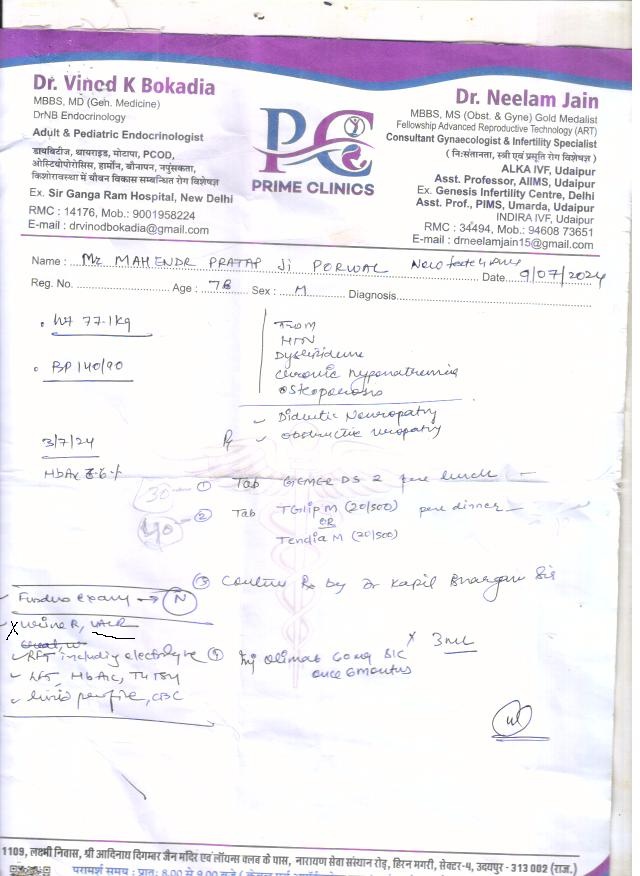 Dr. Vinod K Bokadia
MBBS, MD (Geh. Medicine)
DrNB Endocrinology
Adult & Pediatric Endocrinologist
डायबिटीज, थायराइड, मोटापा, PCOD,
ओस्टियोपोरोसिस, हार्मोन, बौनापन, नपुंसकता,
किशोरावस्था में यौवन विकास सम्बन्धित रोग विशेषज्ञ
Ex. Sir Ganga Ram Hospital, New Delhi
RMC : 14176, Mob.: 9001958224
E-mail : drvinodbokadia@gmail.com
PC
PRIME CLINICS
Dr. Neelam Jain
MBBS, MS (Obst. & Gyne) Gold Medalist
Fellowship Advanced Reproductive Technology (ART)
Consultant Gynaecologist & Infertility Specialist
( नि:संतानता, स्त्री एवं प्रसूति रोग विशेषज्ञ )
ALKA IVF, Udaipur
Asst. Professor, AIIMS, Udaipur
Ex. Genesis Infertility Centre, Delhi
Asst. Prof., PIMS, Umarda, Udaipur
INDIRA IVF, Udaipur
RMC : 34494, Mob.: 94608 73651
E-mail : drneelamjain15@gmail.com
Name : Mr MAHENDR PRATAP Ji PORWAL Date 9/07/2024
Reg. No. Age : 78 Sex : M Diagnosis
Wt 77.1kg
BP 140/90
HTN
Chronic hyponathemia
Osteoporosis
Diabetic Neuropathy
Obstructive uropathy
3/7/24
HbAc 8.6%
Rx
30 ① Tab GEMER DS 2 pre lunch
40 ② Tab TGlip M (20/500) pre dinner
OR
Tendia M (20/500)
③ Continue Rx by Dr Kapil Bhargav Sir
Fundus → N
X Urine R, UACR
RFT including electrolyte
LFT, HbAic, T4TSH
Lipid profile, CBC
④ Inj Olimab 60 mg S/C
once 6 months
X 3 mL
1109, लक्ष्मी निवास, श्री आदिनाथ दिगम्बर जैन मंदिर एवं लॉयन्स क्लब के पास, नारायण सेवा संस्थान रोड़, हिरन मगरी, सेक्टर-4, उदयपुर - 313 002 (राज.)
परामर्श समय : प्रात: 8.00 से 9.00 बजे